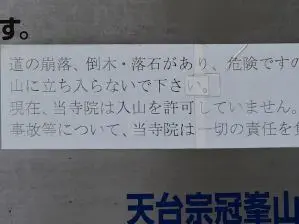 す。
道の崩落、倒木・落石があり、危険ですの
山に立ち入らないで下さい。
現在、当寺院は入山を許可していません。
事故等について、当寺院は一切の責任を
天台宗冠峯山